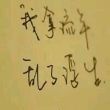 “我拿流年
乱了浮生。